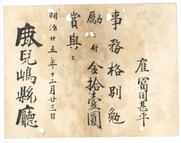 雇 冨田甚平
事務格別勉
励ニ付金拾壹圓
賞與ス
明治廿五年十二月廿三日
鹿兒嶋縣廳